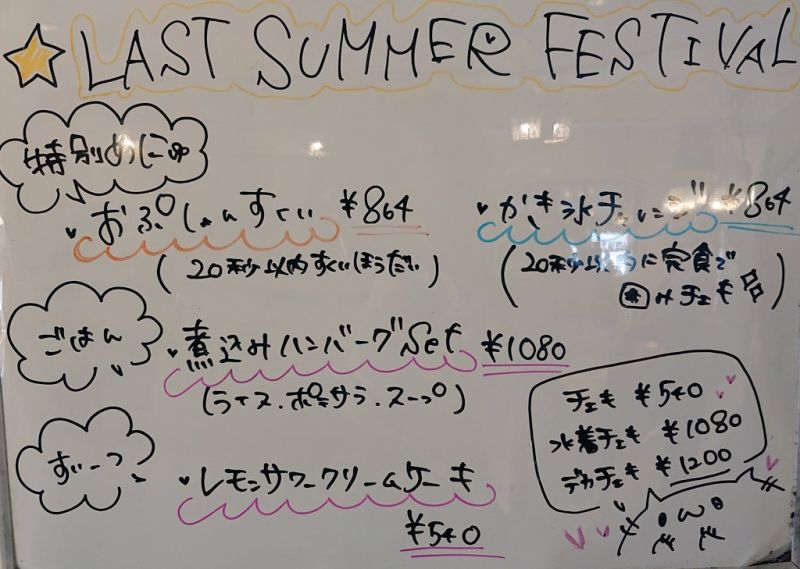 LAST SUMMER FESTIVAL
特別めにゅ
おぷしょんすくい ¥864
(20秒以内すくいほうだい)
かき氷チャレンジ ¥864
(20秒以内に完食で
囲みチェキ
ごはん
煮込みハンバーグSet ¥1080
(ライス.ポテサラ.スープ)
すいーつ
レモンサワークリームケーキ
¥540
チェキ ¥540
水着チェキ ¥1080
デカチェキ ¥1200